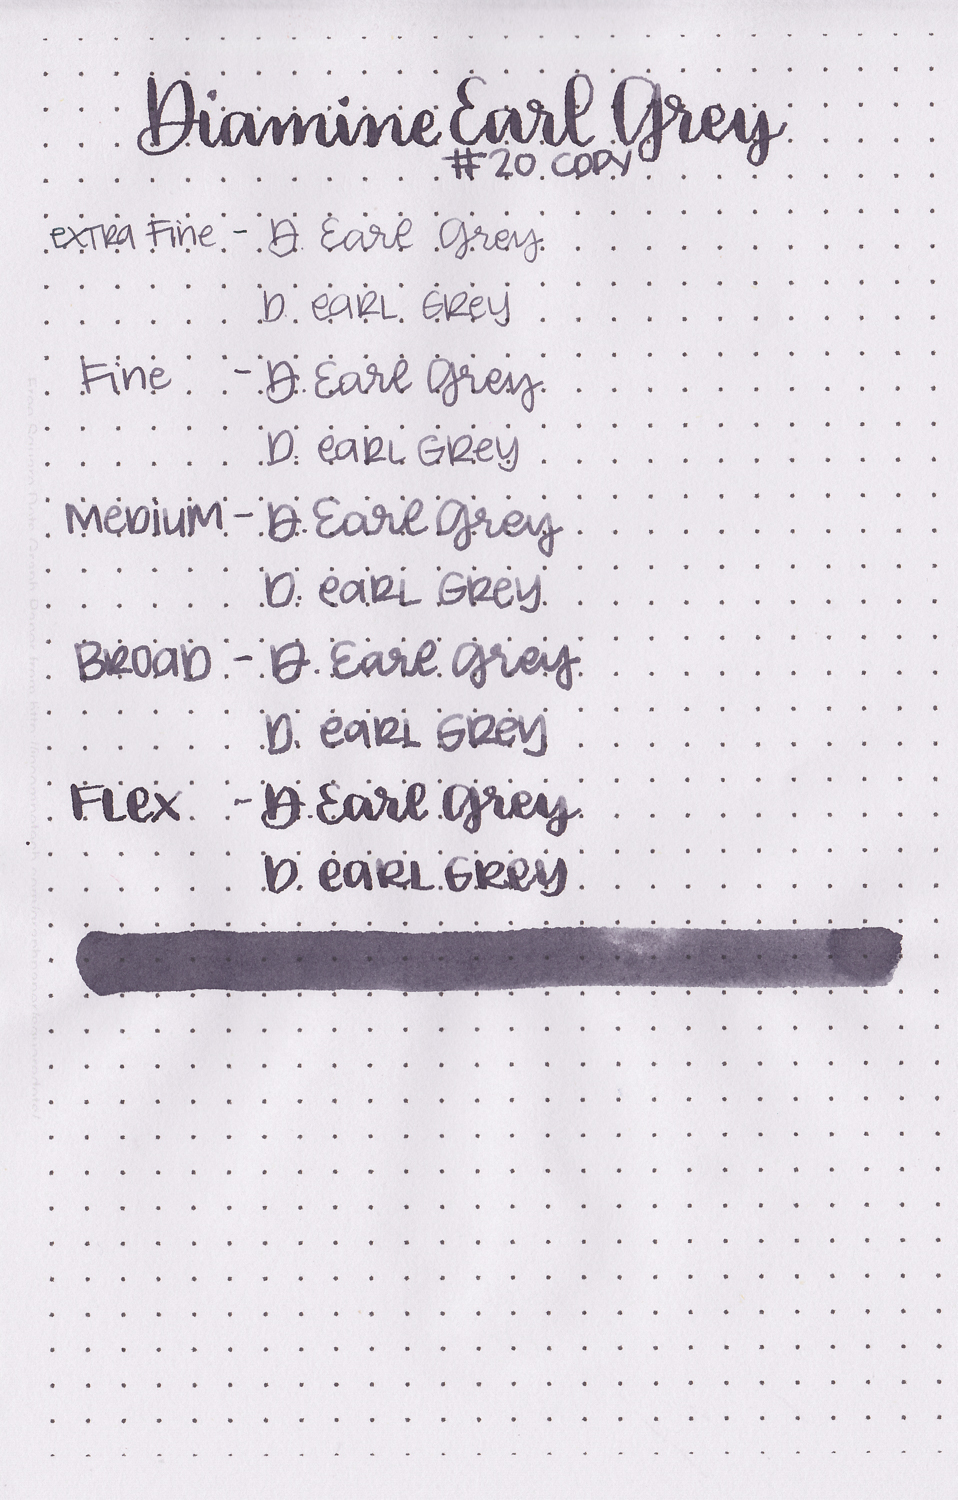 Diamine Earl Grey
#20 COPY
extra Fine - D Earl Grey
D. earl Grey
Fine - D. Earl Grey
D. earl Grey
Medium - D. Earl Grey
D. earl Grey
Broad - D. Earl Grey
D. earl Grey
Flex - D. Earl Grey
D. earl Grey